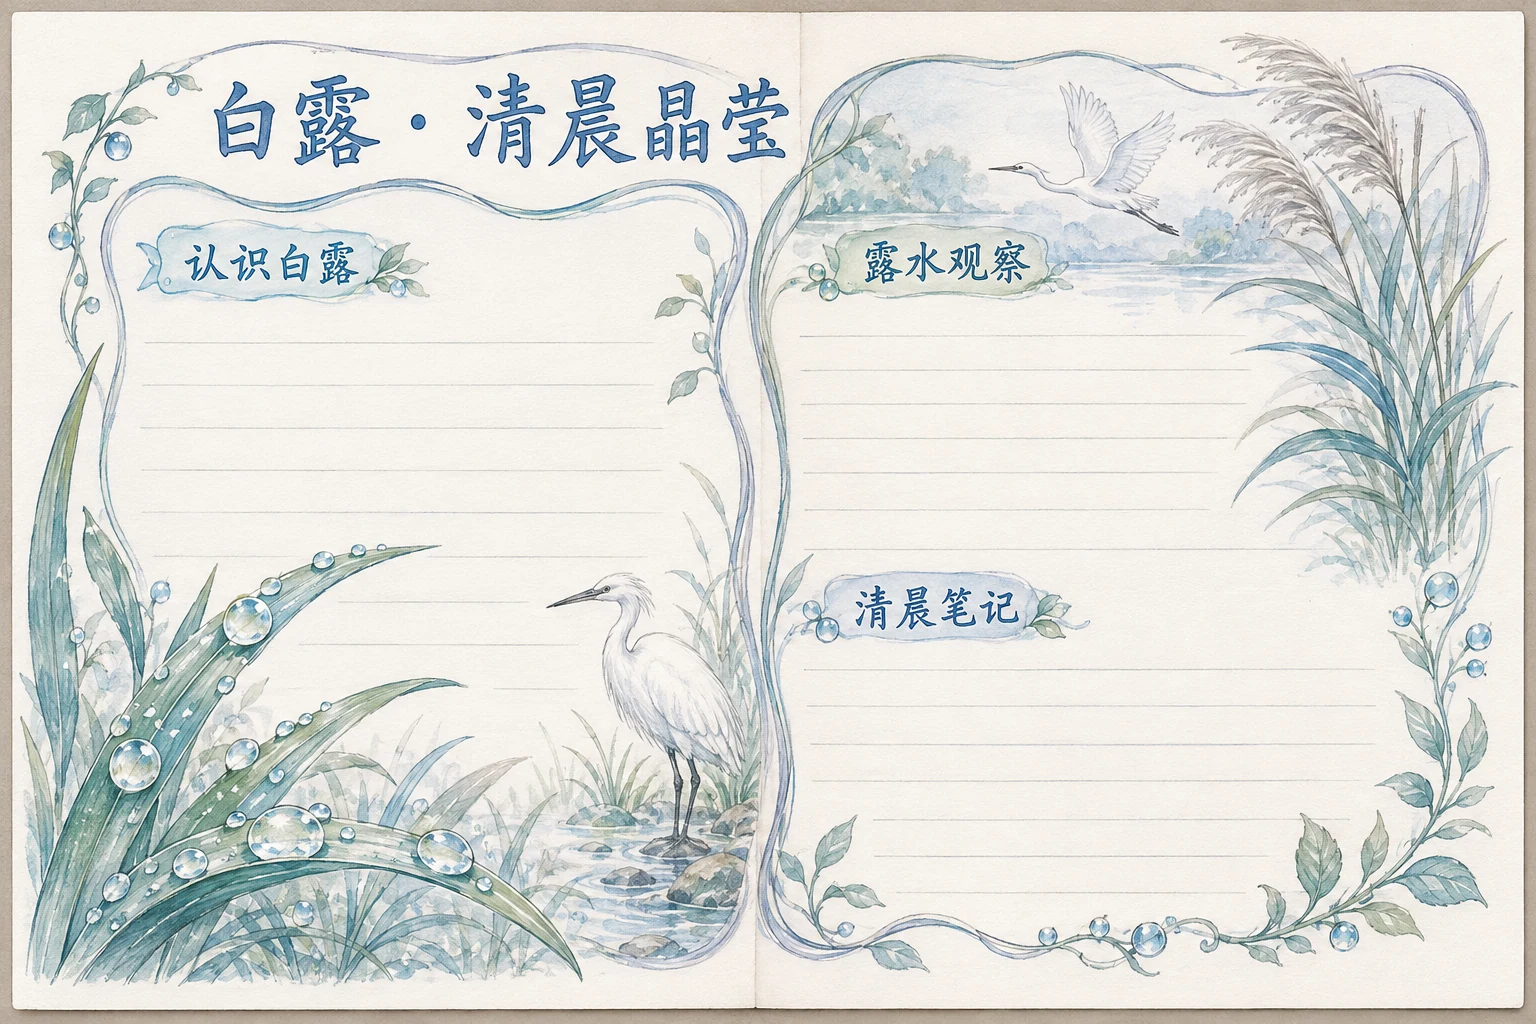 白露·清晨晶莹
认识白露
露水观察
清晨笔记